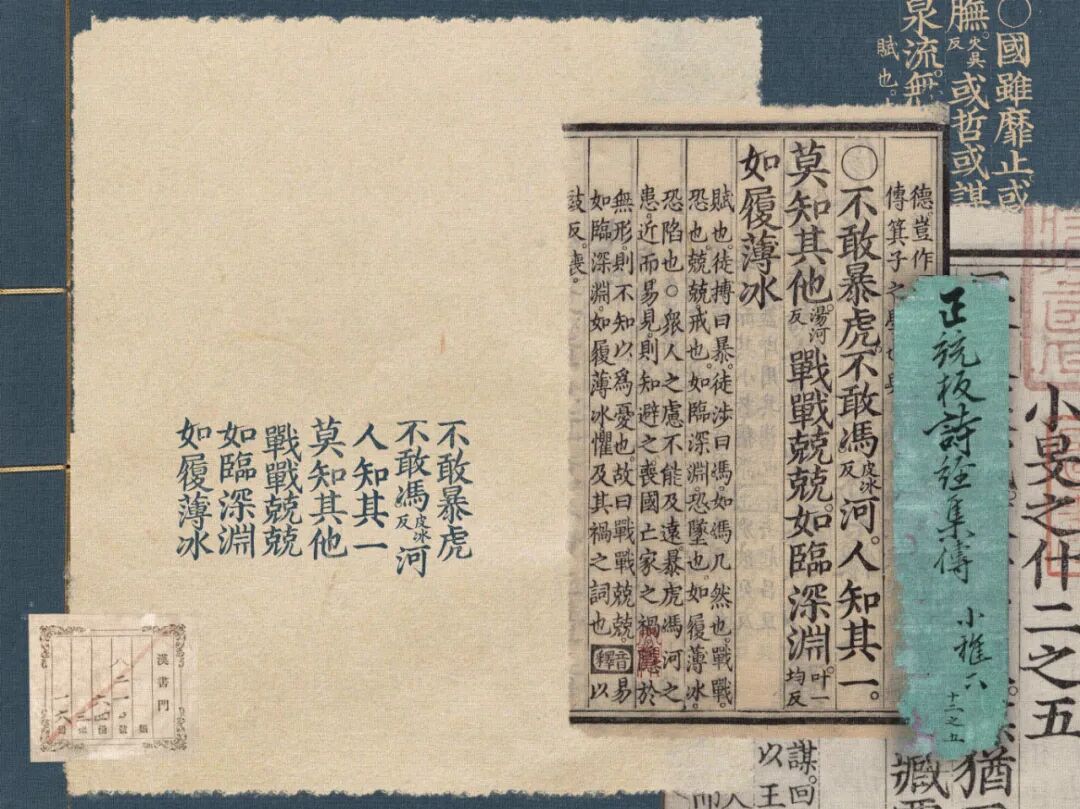 ○國雖靡止或
膴火吳反或哲或謀
泉流無
賦也
小旻之什二之五
猶
臧
謀。回
以王
正統板詩經集傳 小雅六
十二之五
德。豈作
傳箕子之
○不敢暴虎。不敢馮皮冰反河。人知其一。
莫知其他湯河反戰戰兢兢。如臨深淵。叶一均反
如履薄冰
賦也。徒搏曰暴。徒涉曰馮。如馮几然也。戰戰。
恐也。兢兢。戒也。如臨深淵。恐墜也。如履薄冰。
恐陷也○眾人之慮不能及遠暴虎馮河之
患。近而易見。則知避之喪國亡家之禍於
無形。則不知以爲憂也。故曰戰戰兢兢。
如臨深淵。如履薄冰懼及其禍之詞也音釋易以
豉反。喪。
不敢暴虎
不敢馮皮冰反河
人知其一
莫知其他
戰戰兢兢
如臨深淵
如履薄冰
漢書門
類